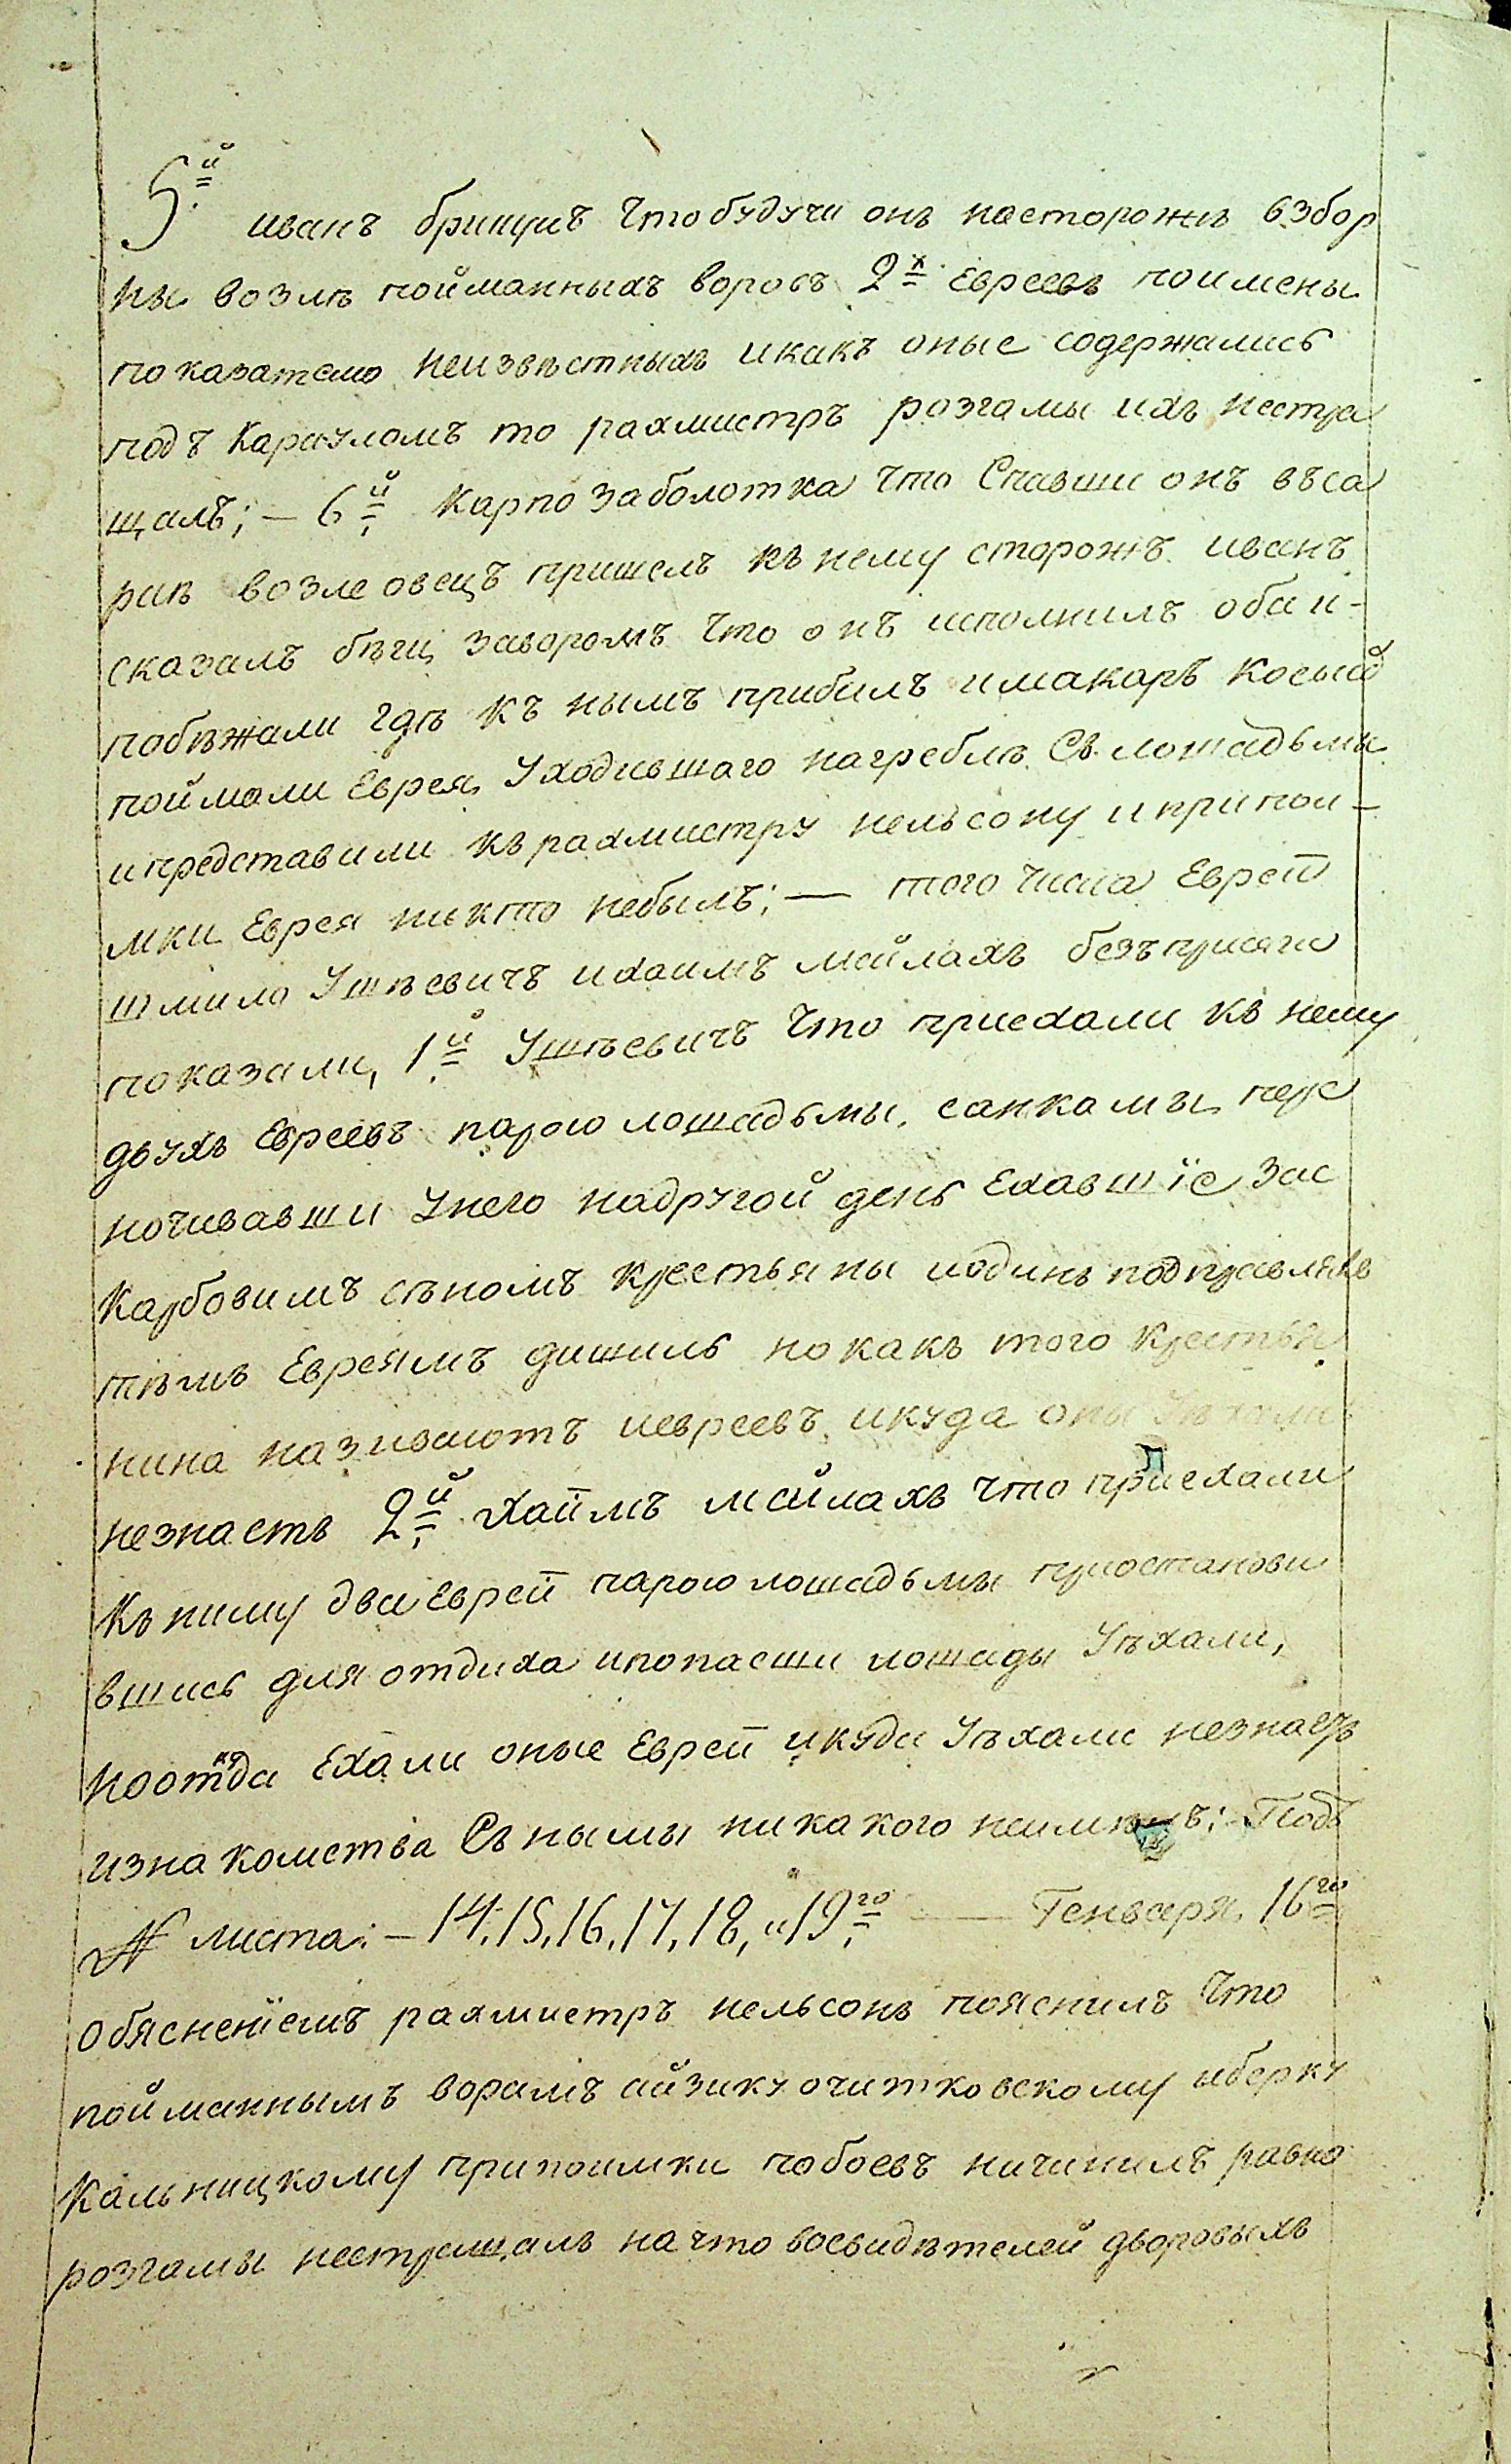 5й иванъ брицунъ что будучи онъ насторожѣ взбор
ны возлѣ пойманныхъ воровъ 2х евреевъ поимены
показателю неизвѣстныхъ икакъ оные содержались
подъ карауломъ то рахмистръ розгамы ихъ нестра
щалъ; — 6й Карпо заболотка что Спавши онъ въса
раѣ возле овецъ пришелъ къ нему сторожъ иванъ
сказалъ бѣгц заворомъ что онъ исполнилъ оба и-
побѣжали гдѣ къ нымъ прибилъ имакаръ косый
поймали Еврея Уходившаго нагреблѣ Съ лошадьми
ипредставили къ рахмистру нельсону ипри пои-
мки Еврея никто небылъ; — того числа Евреи
шмило Ушѣевичъ ихаимъ мейлахъ безъ присяги
показали, 1й Ушѣевичъ что приехали къ нему
двухъ Евреевъ парою лошадьмы, санкамы, пере
ночивавши Унего надругой день Ехавшіе зас
Карбовимъ сѣномъ крестьяны иодинъ подправлялъ
тѣмъ Евреямъ дишиль но какъ того крестья
нина називаютъ иевреевъ икуда оны Уѣхали
незнаетъ 2й Хаимъ мейлахъ что приехали
къ нему два Евреи парою лошадьмы приостанови
вшись для отдиха ипопасши лошады Уѣхали,
нооткуда Ехали оные Евреи икуда Уѣхали незнаетъ
изнакомства Съ нымы никакого неимѣлъ; Подъ
№ листа: — 14, 15, 16, 17, 18, и 19го — Генваря 16го
обясненіемъ рахмистръ нельсонъ пояснилъ что
пойманнымъ ворамъ айзику очитковскому иберку
Кальницкому припоимки побоевъ ничинилъ равно
розгамы нестращалъ на что восвидѣтелей дворовыхъ